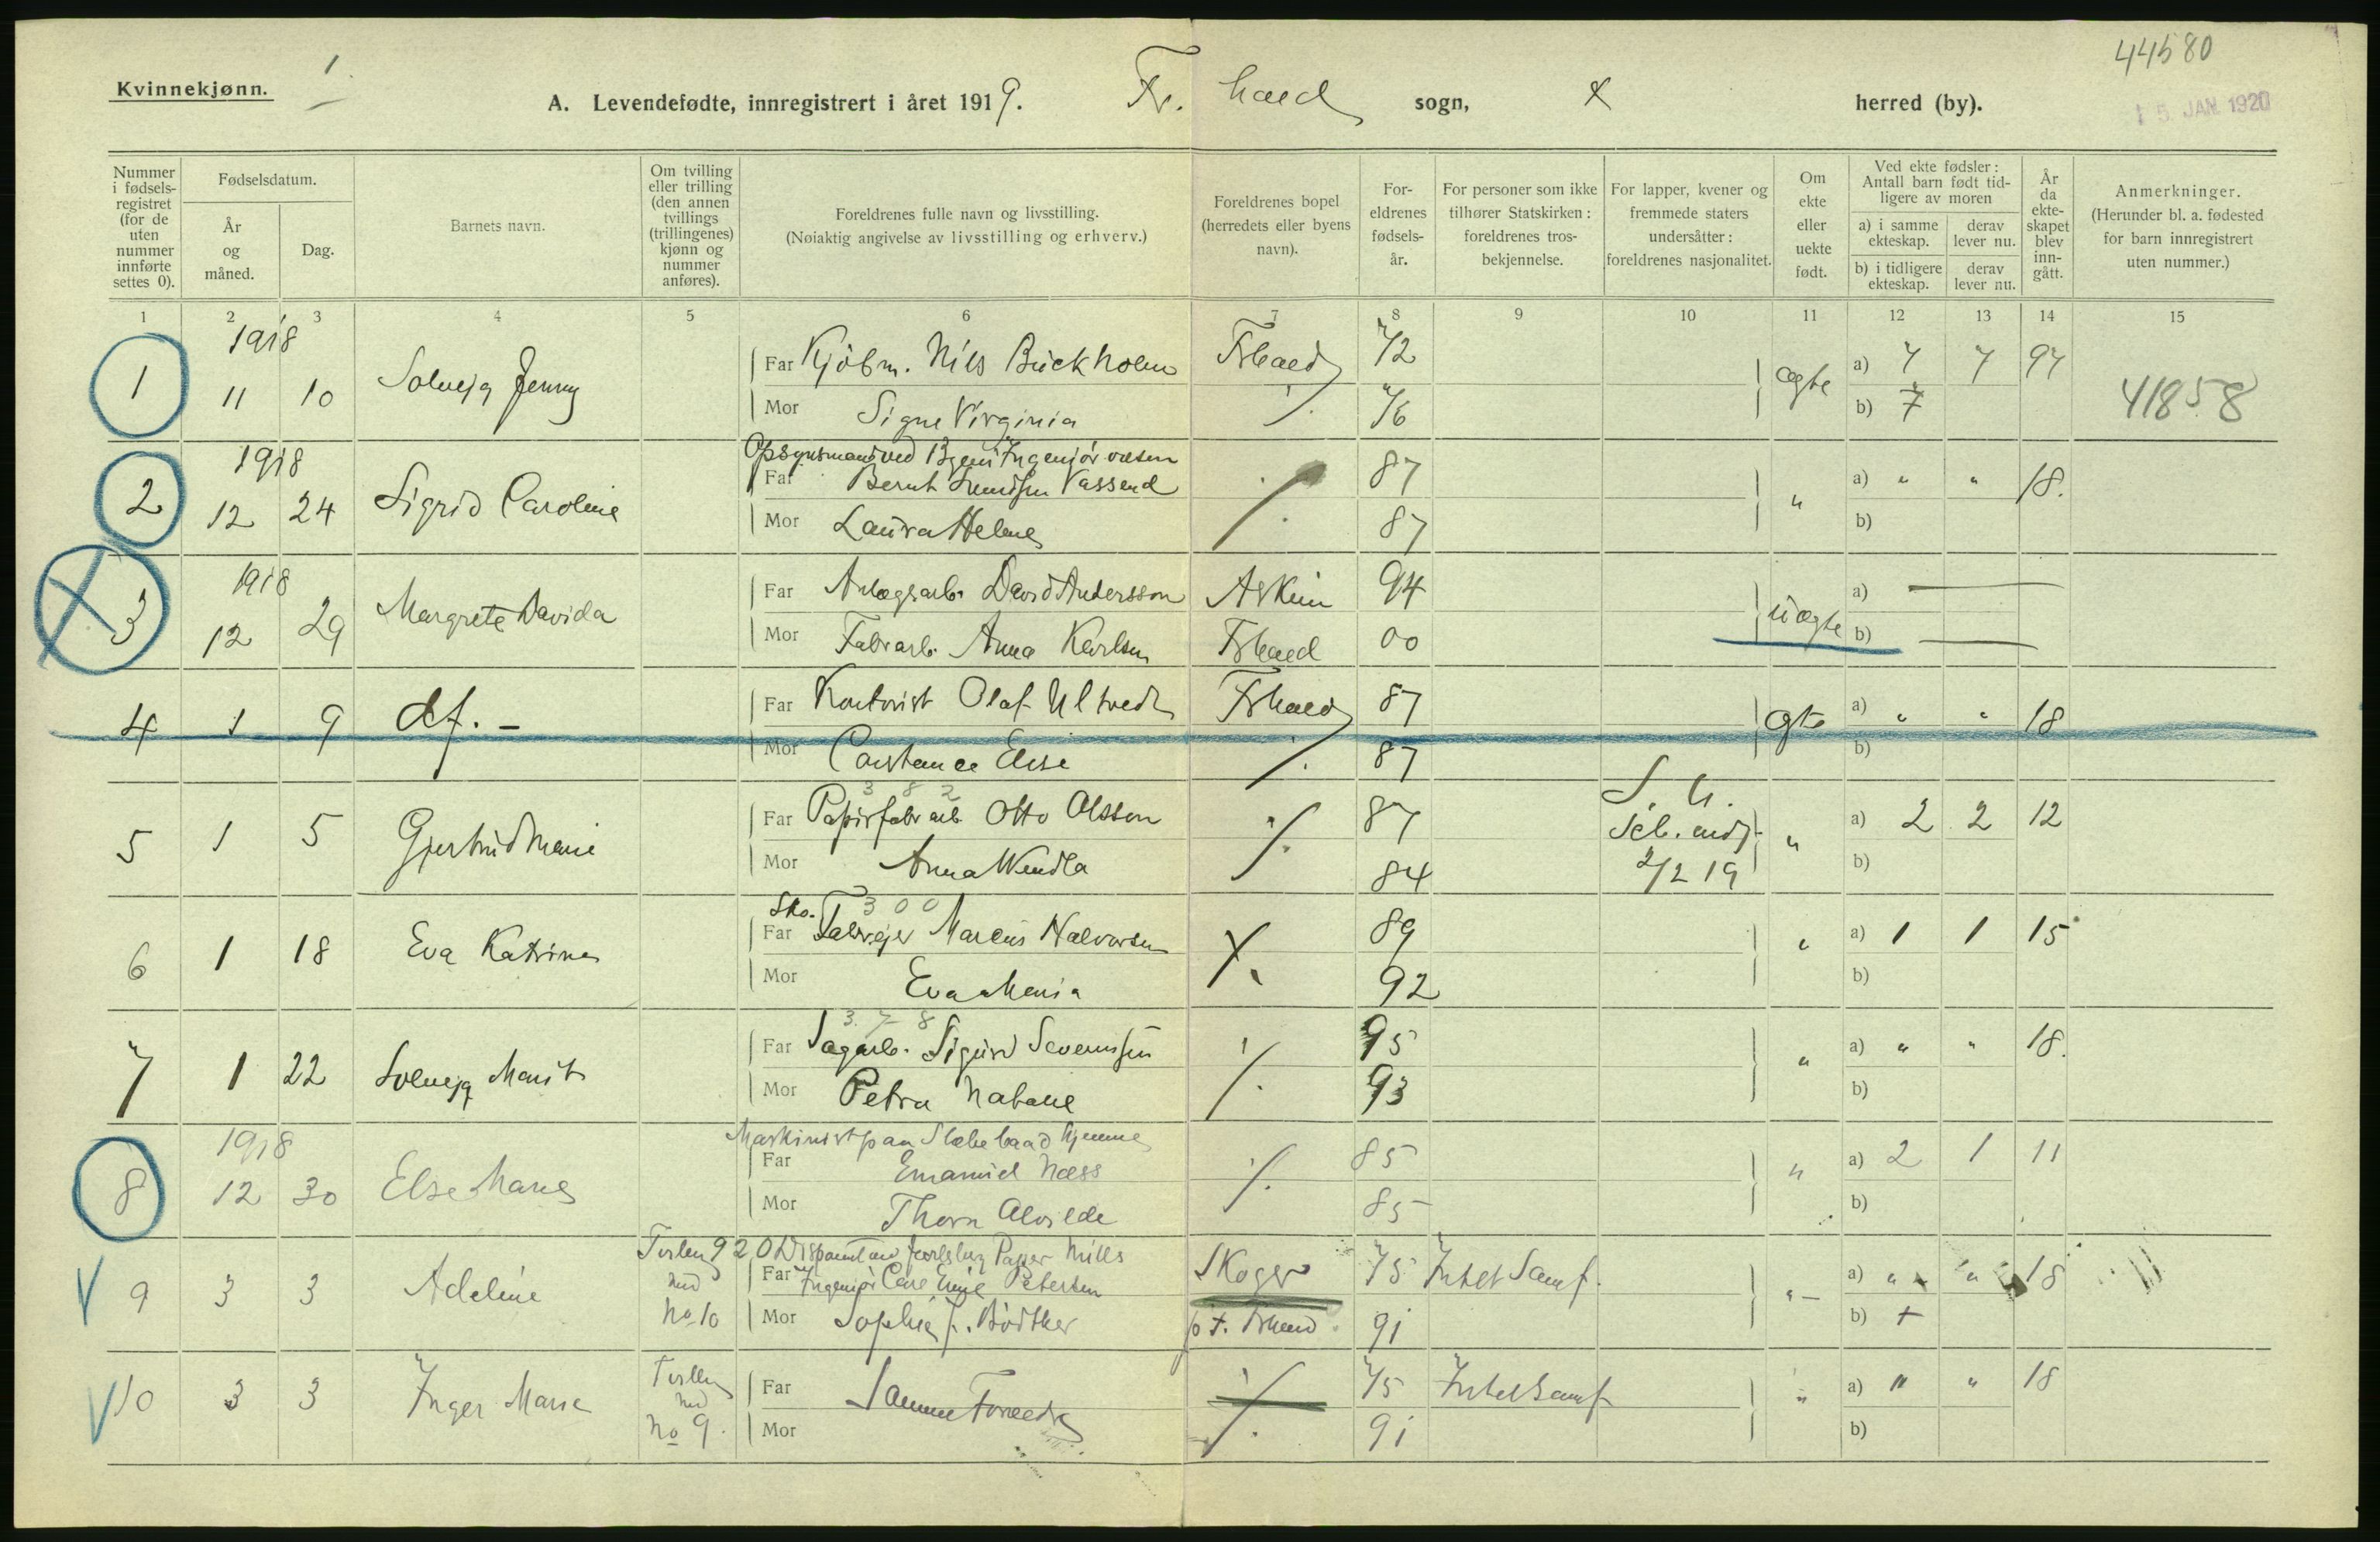 44580
Kvinnekjønn.
1
A. Levendefødte, innregistrert i året 1919. Fr. hald sogn, x herred (by).
15 JAN. 1920
Nummer i fødsels-registret (for de uten nummer innførte settes 0).
Fødselsdatum.
År og måned.
Dag.
Barnets navn.
Om tvilling eller trilling (den annen tvillings (trillingenes) kjønn og nummer anføres).
Foreldrenes fulle navn og livsstilling.
(Nøiaktig angivelse av livsstilling og erhverv.)
Foreldrenes bopel (herredets eller byens navn).
For-eldrenes fødsels-år.
For personer som ikke tilhører Statskirken: foreldrenes tros-bekjennelse.
For lapper, kvener og fremmede staters undersåtter: foreldrenes nasjonalitet.
Om ekte eller uekte født.
Ved ekte fødsler: Antall barn født tid-ligere av moren
a) i samme ekteskap.
derav lever nu.
b) i tidligere ekteskap.
derav lever nu.
År da ekte-skapet blev inn-gått.
Anmerkninger.
(Herunder bl. a. fødested for barn innregistrert uten nummer.)
1 2 3 4 5 6 7 8 9 10 11 12 13 14 15
1918
1 11 10 Solveig Jenny
Far Kjøbm. Nils Buckholm Frhald 72 ægte a) 7 7 97
Mor Signe Virginia ./. 76 b) 7
41858
1918
2 12 24 Sigrid Caroline
Opsynsmand ved Byens Ingeniørvæsen
Far Bernt Vassend ./. 87 " a) " " 18.
Mor Laura Helene 87 b)
1918
3 12 29 Margrete Davida
Far Anlægsarb. David Andersson Askim 94 uægte a) —
Mor Fabr arb. Anna Karlsen Frhald 00 b) —
4 1 9 df. -
Far Kontorist Olaf Ultvedt Frhald 87 ægte a) " " 18
Mor Constance Elise ./. 87 b)
382
5 1 5 Gjertrud Marie
Far Papirfabr arb. Otto Olsson ./. 87 S. U. " a) 2 2 12
Mor Anna Wendla 84 2/2 19 b)
300
Sko.
6 1 18 Eva Katrine
Far Fabr.ejer Marius Halvorsen ./. 89 " a) 1 1 15
Mor Eva Maria 92 b)
378
7 1 22 Solveig Marit
Far Sagarb. Sigurd Severinsen ./. 95 " a) " " 18.
Mor Petra Natalie 93 b)
1918
8 12 30 Else Marie
Maskinist paa Slæbebaad hjemme
Far Emanuel Næss ./. 85 " a) 2 1 11
Mor Thora Alvilde 85 b)
9 3 3 Adeline
med No 10
920 Paper Mills
Far Ingeniør Carl Emil Petersen Skoger 75 Intet Samf. " - a) " " 18
Mor Sophie f. Bødtker Frhald 91 b) +
10 3 3 Inger Marie
med No 9.
Far Samme Foreldre ./. 75 Intet Samf " a) " " 18
Mor 91 b)